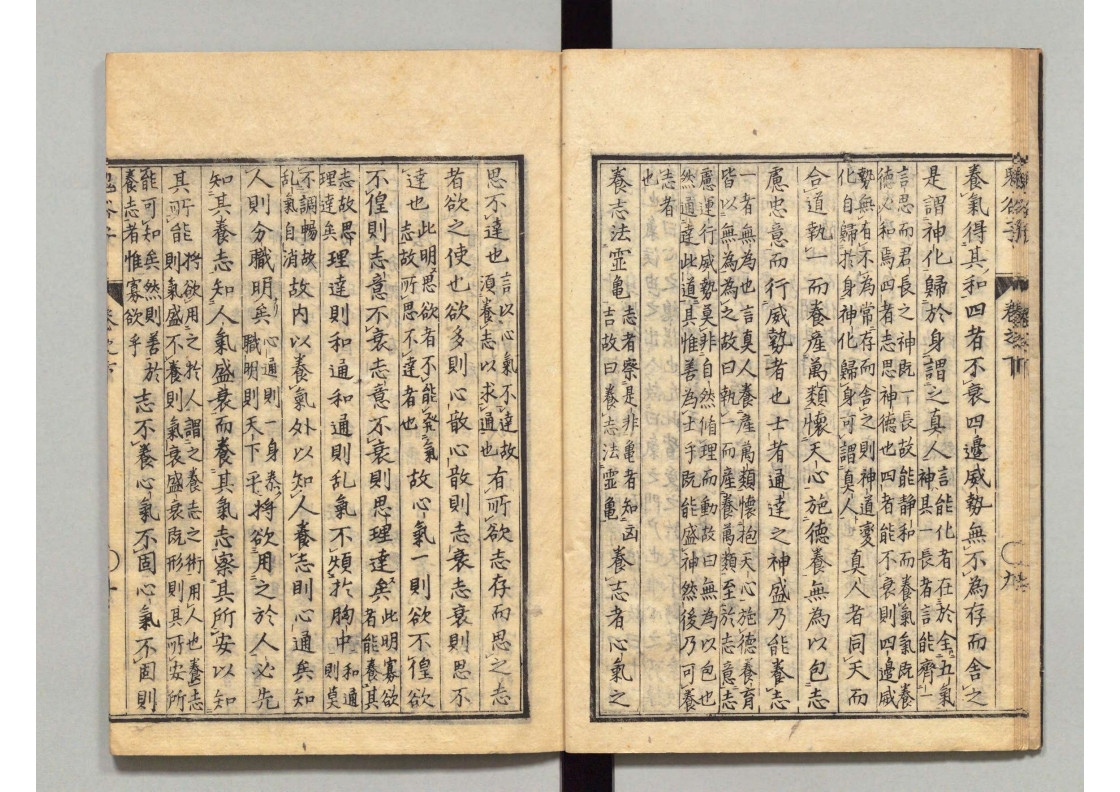 鬼谷子 卷之下 九
養氣得其和四者不衰四邊威勢無不為存而舍之
是謂神化歸於身謂之真人
言能化者在於全五氣
神其一長者言能齊一
言思而君長之神既一長故能靜和而養氣氣既養
德必和焉四者志思神德也四者能不衰則四邊威
勢無有不為常存而舍之則神道變
化自歸於身神化歸身可謂真人也
真人者同天而
合道執一而養產萬類懷天心施德養無為以包志
慮忠意而行威勢者也士者通達之神盛乃能養志
一者無為也言真人養產萬類懷抱天心施德養育
皆以無為為之故曰執一而產養萬類至於志意志
慮運行威勢莫非自然循理而動故曰無為以包也
然通達此道其惟善為士乎既能盛神然後乃可養
志者
也
養志法靈龜
志者察是非龜者知凶
吉故曰養志法靈龜
養志者心氣之
思不達也
言以心氣不達故
須養志以求通也
有所欲志存而思之志
者欲之使也欲多則心散心散則志衰志衰則思不
達也
此明思欲者不能發氣
志故所思不達者也
故心氣一則欲不徨欲
不徨則志意不衰志意不衰則思理達矣
此明寡欲
者能養其
志故思
理達矣
理達則和通和通則乱氣不煩於胸中
和通
則莫
不調暢故
乱氣自消
故內以養氣外以知人養志則心通矣知
人則分職明矣
心通則一身泰
職明則天下平
將欲用之於人必先
知其養志知人氣盛衰而養其氣志察其所安以知
其所能
將欲用之於人謂之養志之術用人也養志
則氣盛不養則氣衰盛衰既形則其所安所
能可知矣然則善於
養志者惟寡欲乎
志不養心氣不固心氣不固則